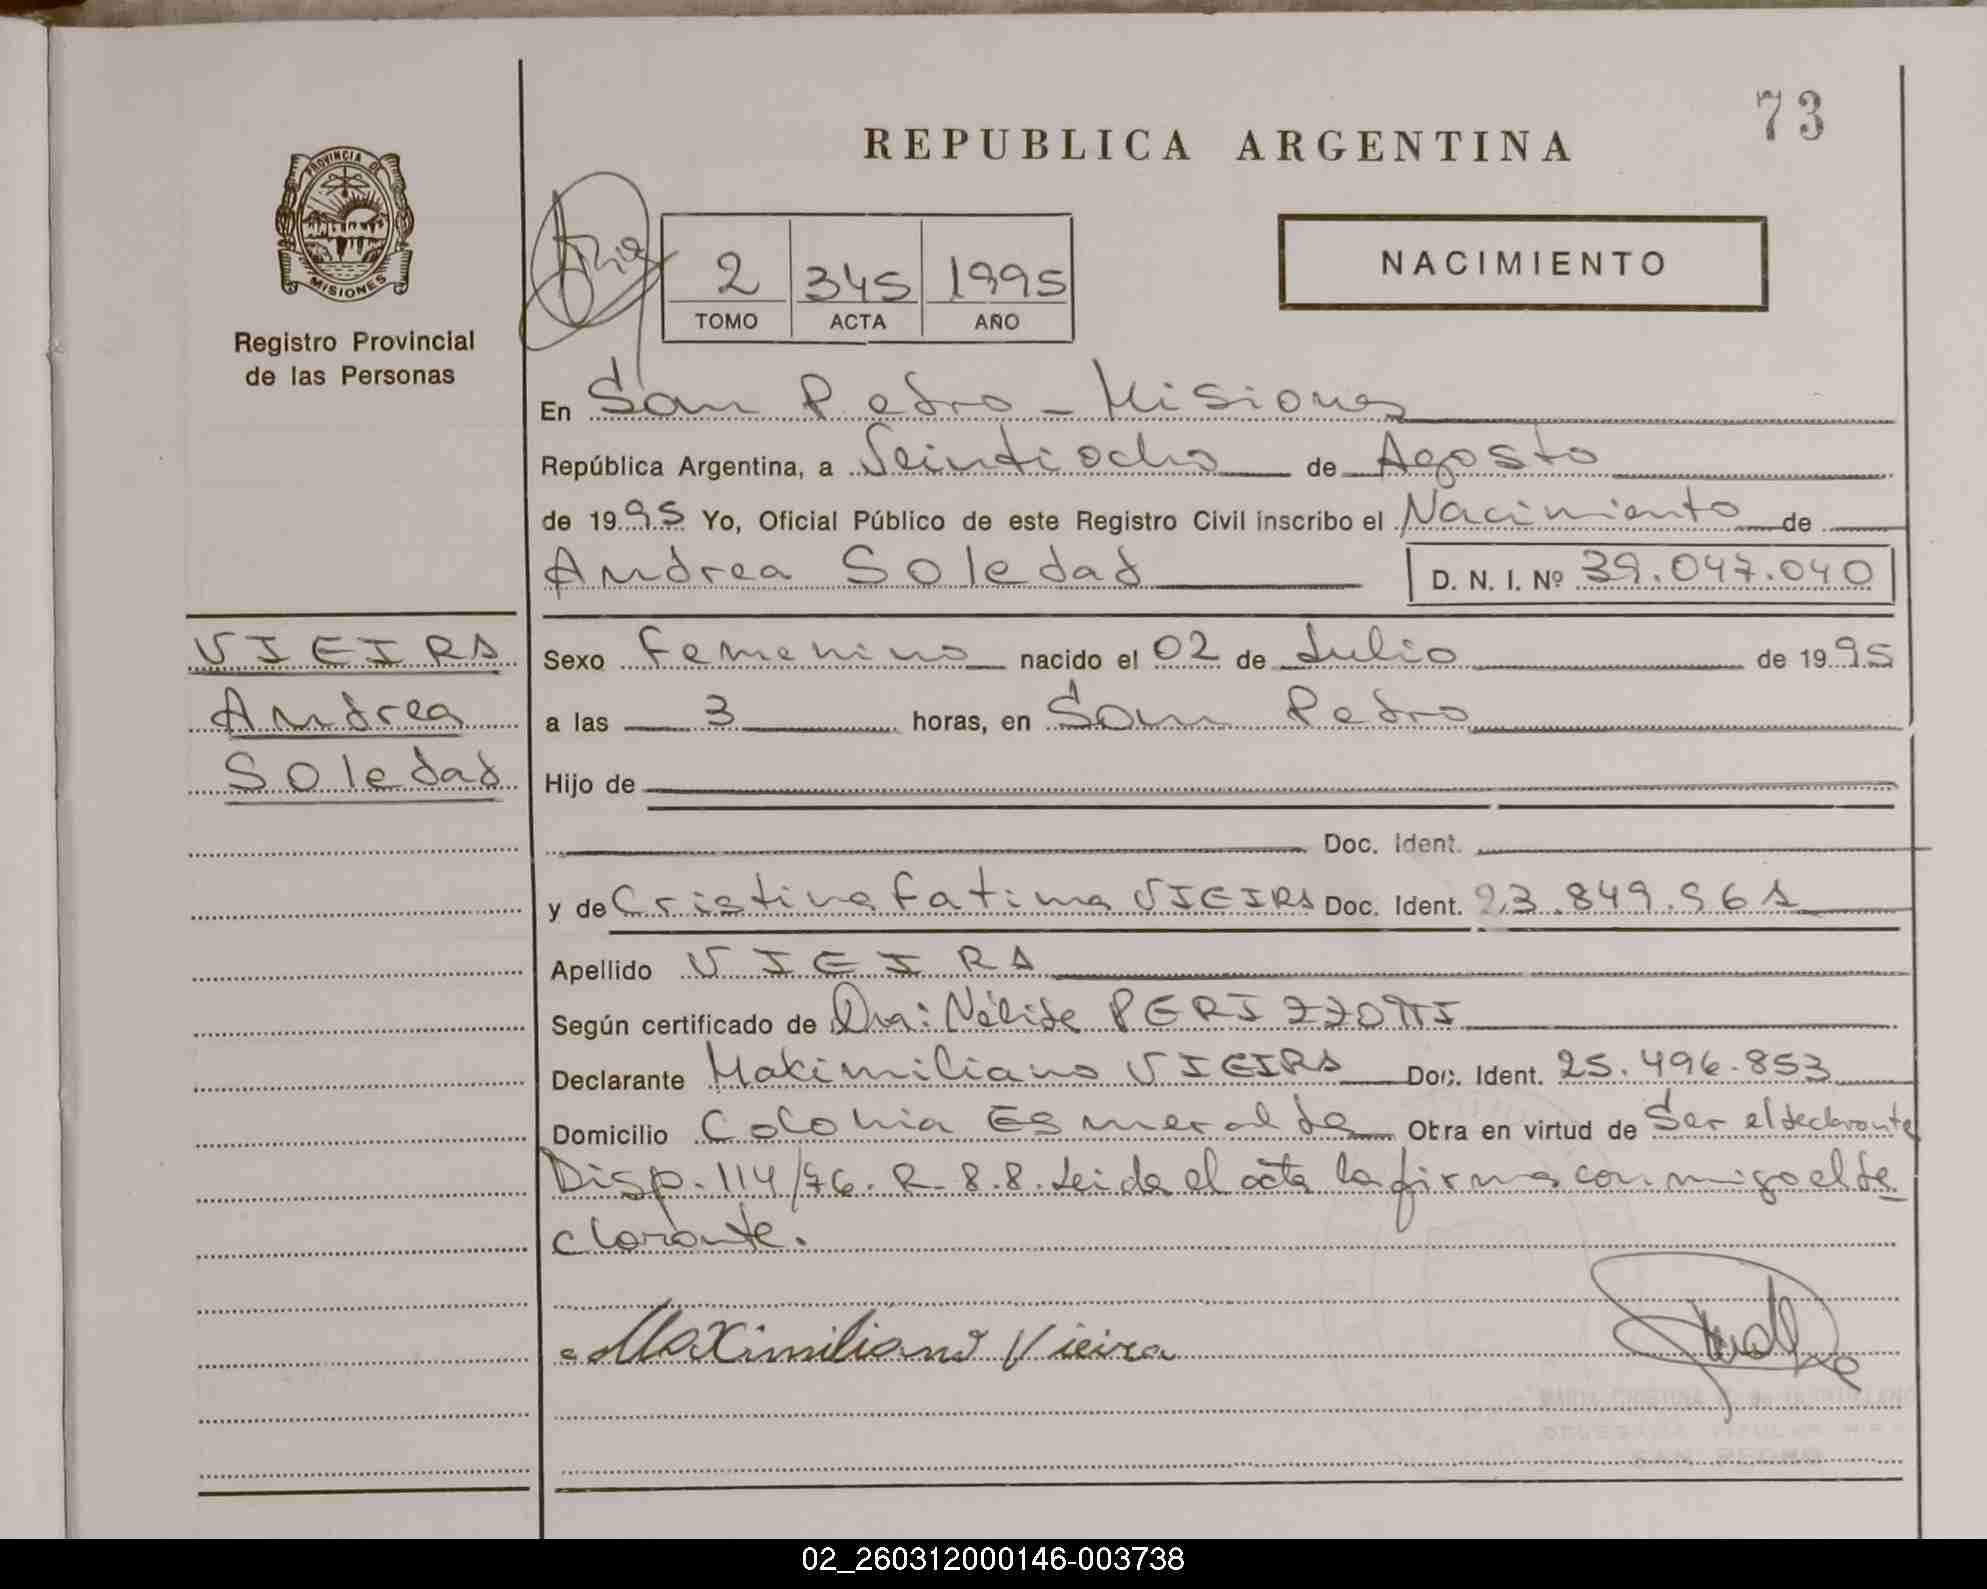 73
REPUBLICA ARGENTINA
PROVINCIA DE
MISIONES
Registro Provincial
de las Personas
2 345 1995
TOMO ACTA AÑO
NACIMIENTO
En San Pedro - Misiones
República Argentina, a Veintiocho de Agosto
de 1995 Yo, Oficial Público de este Registro Civil inscribo el Nacimiento de
Andrea Soledad D. N. I. Nº 39.047.040
VIEIRA
Andrea
Soledad
Sexo Femenino nacido el 02 de Julio de 1995
a las 3 horas, en San Pedro
Hijo de
Doc. Ident.
y de Cristina Fatima VIEIRA Doc. Ident. 23.849.961
Apellido VIEIRA
Según certificado de Dra: Nélide PERIZZOTTI
Declarante Maximiliano VIEIRA Doc. Ident. 25.496.853
Domicilio Colonia Esmeralda Obra en virtud de Ser el declarante
Disp. 114/76. R. 8.8. Leida el acta la firma conmigo el de
clarante.
Maximiliano Vieira
SAN PEDRO
02_260312000146-003738